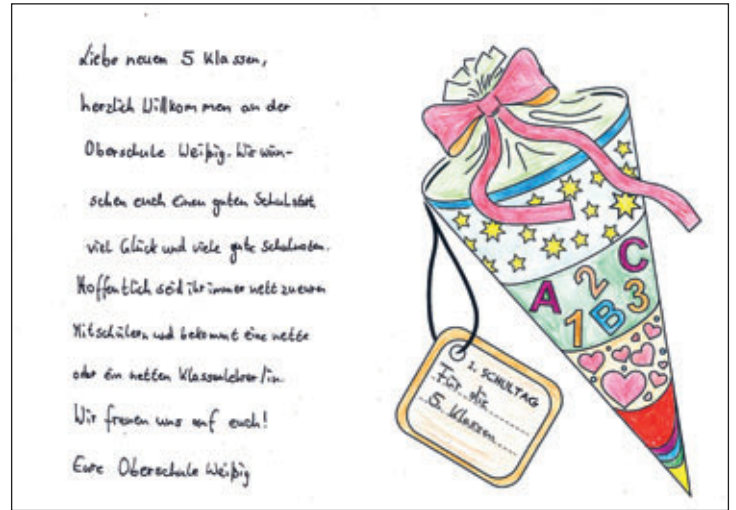 Liebe neuen 5 Klassen,
herzlich Willkommen an der
Oberschule Weißig. Wir wün-
schen euch einen guten Schulstart,
viel Glück und viele gute Schulnoten.
Hoffentlich seid ihr immer nett zu euren
Mitschülern und bekommt eine nette
oder ein netten Klassenlehrer/in.
Wir freuen uns auf euch!
Eure Oberschule Weißig
A 2 C
1 B 3
1. SCHULTAG
Für die
5. Klassen